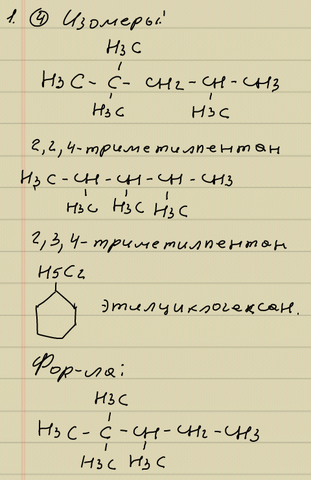 1. ④ Изомеры:
H3C
H3C - C - CH2 - CH - CH3
H3C H3C
2,2,4-триметилпентан
H3C - CH - CH - CH - CH3
H3C H3C H3C
2,3,4-триметилпентан
H5C2
этилциклогексан.
Фор-ла:
H3C
H3C - C - CH - CH2 - CH3
H3C H3C